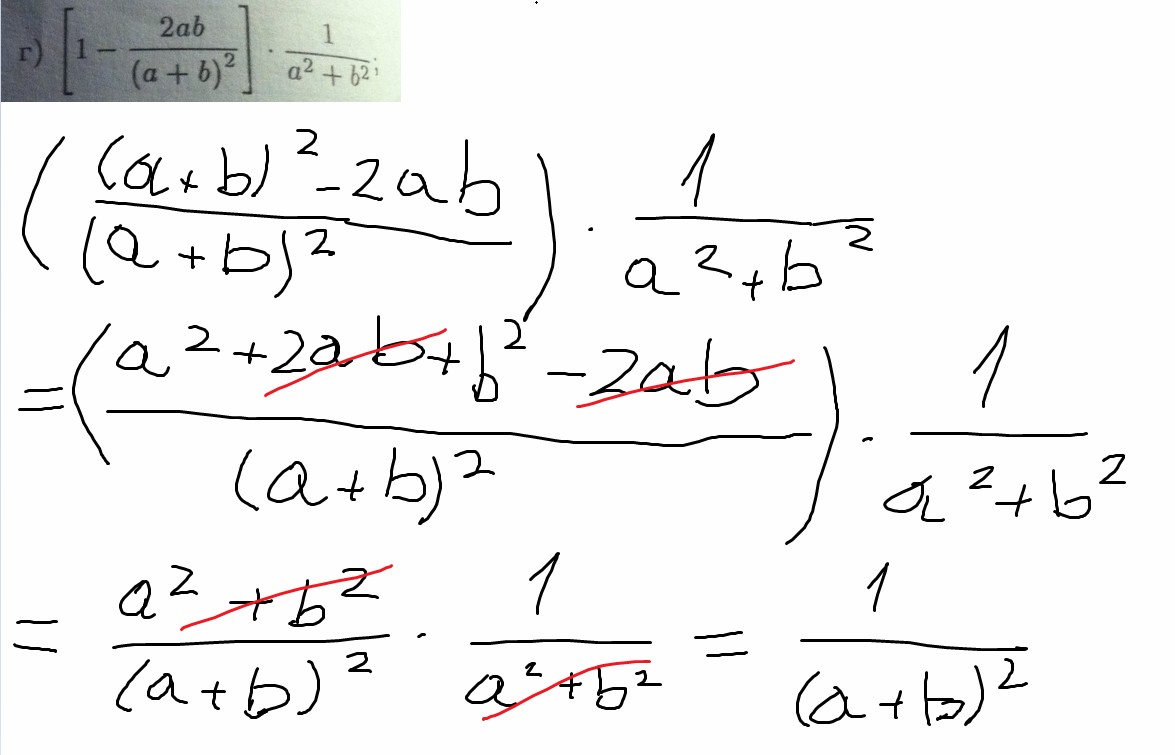 г) [1 − 2ab/(a + b)²] · 1/(a² + b²);
(((a+b)² - 2ab)/(a+b)²) · 1/(a²+b²)
= ((a²+2ab+b² - 2ab)/(a+b)²) · 1/(a²+b²)
= (a²+b²)/(a+b)² · 1/(a²+b²) = 1/(a+b)²